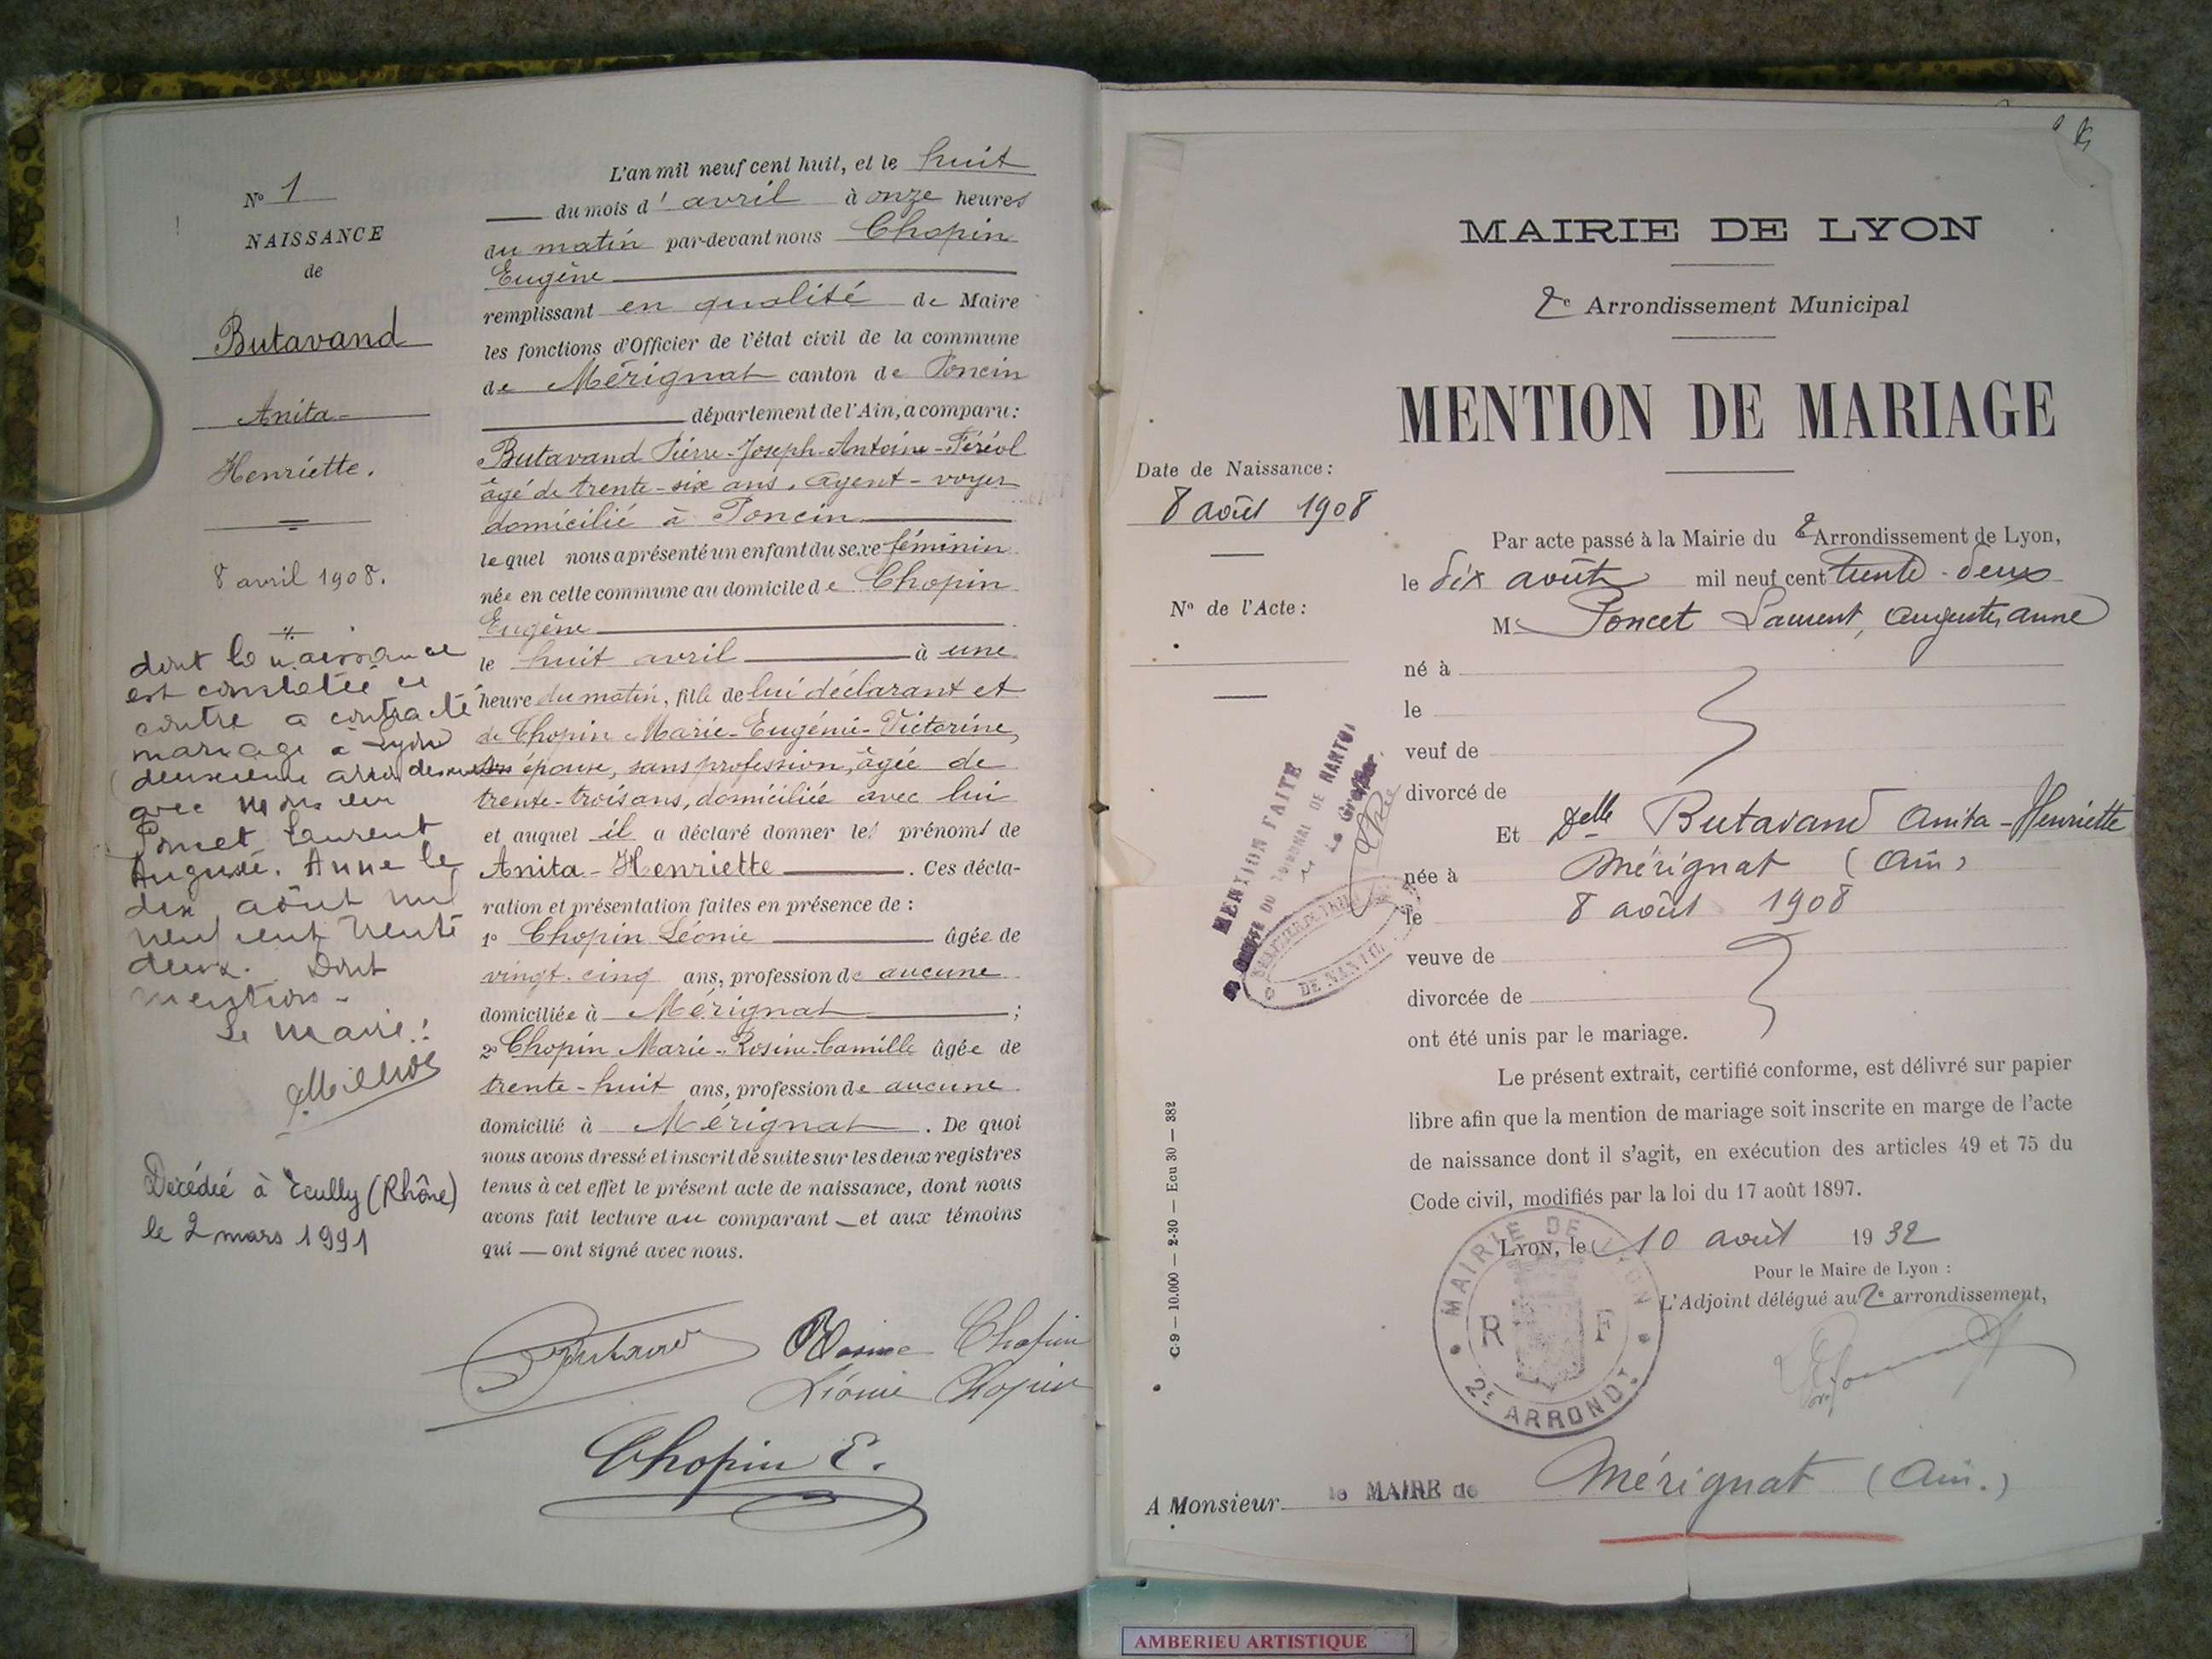 N° 1
NAISSANCE
de
Butavand
Anita
Henriette.
8 avril 1908.
dont la naissance
est constatée ci
contre a contracté
mariage à Lyon
deuxième arrondissement
avec Monsieur
Poncet Laurent
Auguste, Anne le
dix août mil
neuf cent trente
deux. Dont
mention.
Le Maire:
Décédée à Ecully (Rhône)
le 2 mars 1991
L'an mil neuf cent huit, et le huit
du mois d'avril à onze heures
du matin par-devant nous Chopin
Eugène
remplissant en qualité de Maire
les fonctions d'Officier de l'état civil de la commune
de Mérignat canton de Poncin
département de l'Ain, a comparu:
Butavand Pierre-Joseph-Antoine-Féréol
âgé de trente-six ans, agent-voyer
domicilié à Poncin
lequel nous a présenté un enfant du sexe féminin
née en cette commune au domicile de Chopin
Eugène
le huit avril à une
heure du matin, fille de lui déclarant et
de Chopin Marie-Eugénie-Victorine,
son épouse, sans profession, âgée de
trente-trois ans, domiciliée avec lui
et auquel il a déclaré donner les prénoms de
Anita-Henriette. Ces décla-
ration et présentation faites en présence de :
1° Chopin Léonie âgée de
vingt-cinq ans, profession de aucune
domiciliée à Mérignat ;
2° Chopin Marie-Rosine-Camille âgée de
trente-huit ans, profession de aucune
domicilié à Mérignat. De quoi
nous avons dressé et inscrit de suite sur les deux registres
tenus à cet effet le présent acte de naissance, dont nous
avons fait lecture au comparant et aux témoins
qui ont signé avec nous.
Butavand Rosine Chopin
Léonie Chopin
Chopin E.
MAIRIE DE LYON
2e Arrondissement Municipal
MENTION DE MARIAGE
Date de Naissance:
8 août 1908
N° de l'Acte:
Par acte passé à la Mairie du 2 Arrondissement de Lyon,
le dix août mil neuf cent trente-deux
M. Poncet Laurent, Auguste, Anne
né à
le
veuf de
divorcé de
Et Delle Butavand Anita-Henriette
née à Mérignat (Ain)
le 8 août 1908
veuve de
divorcée de
ont été unis par le mariage.
Le présent extrait, certifié conforme, est délivré sur papier
libre afin que la mention de mariage soit inscrite en marge de l'acte
de naissance dont il s'agit, en exécution des articles 49 et 75 du
Code civil, modifiés par la loi du 17 août 1897.
LYON, le 10 août 1932
Pour le Maire de Lyon :
L'Adjoint délégué au 2e arrondissement,
MAIRIE DE LYON
R F
2E ARRONDT
MENTION FAITE
AU GREFFE DU TRIBUNAL DE NANTUA
Le Greffier.
C-9 — 10.000 — 2-30 — Ecu 30 — 382
A Monsieur le MAIRE de Mérignat (Ain.)
AMBERIEU ARTISTIQUE